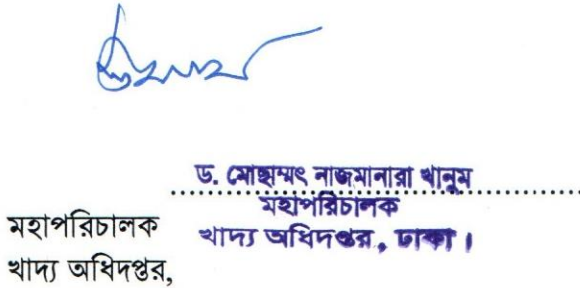 ড. মোছাম্মৎ নাজমানারা খানুম
মহাপরিচালক
খাদ্য অধিদপ্তর, ঢাকা।
মহাপরিচালক
খাদ্য অধিদপ্তর,